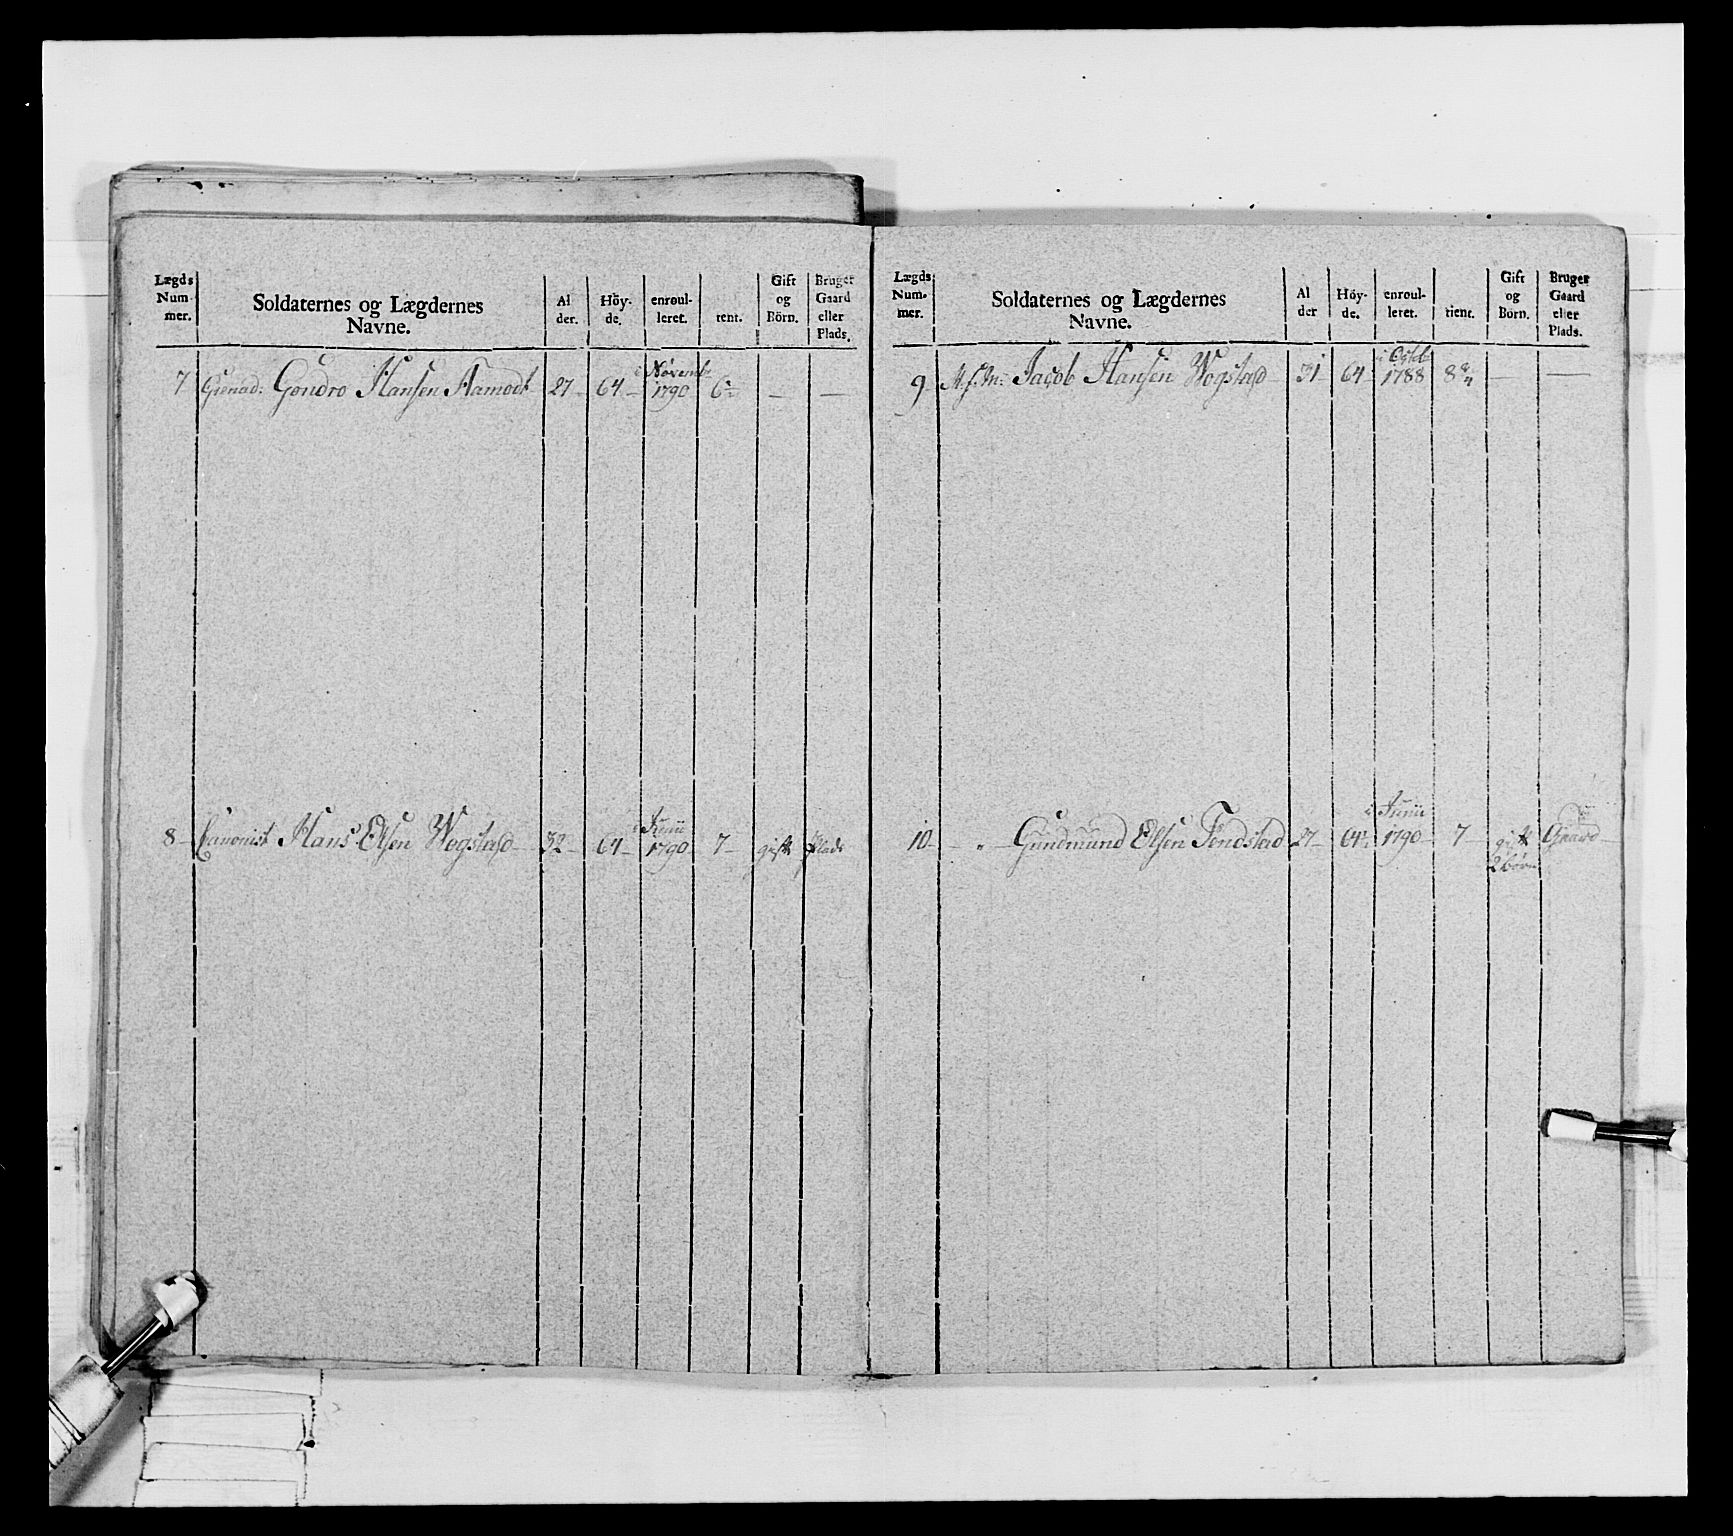 Lægds Num- mer. Soldaternes og Lægdernes Navne. Al der. Höy- de. enroul- leret. tent. Gift og Börn. Bruger Gaard eller Plads.
i Novemb
7 Grenad: Gondro Hansen Aamodt 27 64 1790 6 — —
i Junii
8 Canonist Hans Elsen Wogstad 32 64 1790 7 gift Plads
Lægds Num- mer. Soldaternes og Lægdernes Navne. Al der Höy- de. enroul- leret. tient. Gift og Börn. Bruger Gaard eller Plads.
i Octob
9 Jacob Hansen Wogstad 31 64 1788 8 — —
i Junii
10 " Gundmund Elsen Tendstad 27 64 1790 7 gift Gaard
2 børn